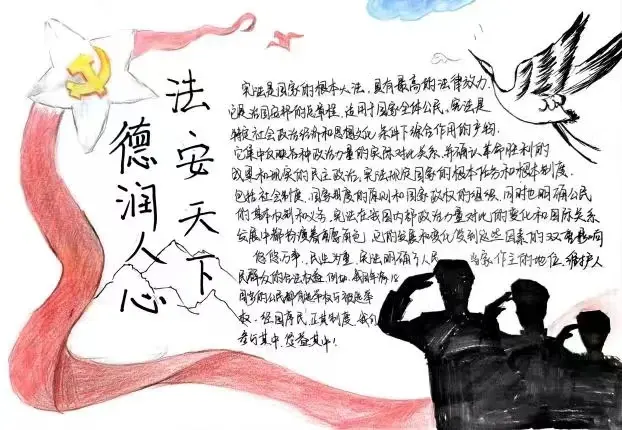 法安天下
德润人心
宪法是国家的根本大法，具有最高的法律效力，
它是治国安邦的总章程，适用于国家全体公民，宪法是
特定社会政治经济和思想文化条件下综合作用的产物，
它集中反映各种政治力量的实际对比关系，并确认革命胜利的
成果和现实的民主政治，宪法规定国家的根本任务和根本制度，
包括社会制度、国家制度的原则和国家政权的组织，同时也明确公民
的基本权利和义务，宪法在我国内部政治力量对比的变化和国际关系
发展中都扮演着角色，它的发展和变化受到这些因素的双
悠悠万事，民生为重，宪法明确了人民当家作主的地位，维护人
民群众的合法权益，例如，我国年满18
周岁的公民都有选举权与被选举
权，